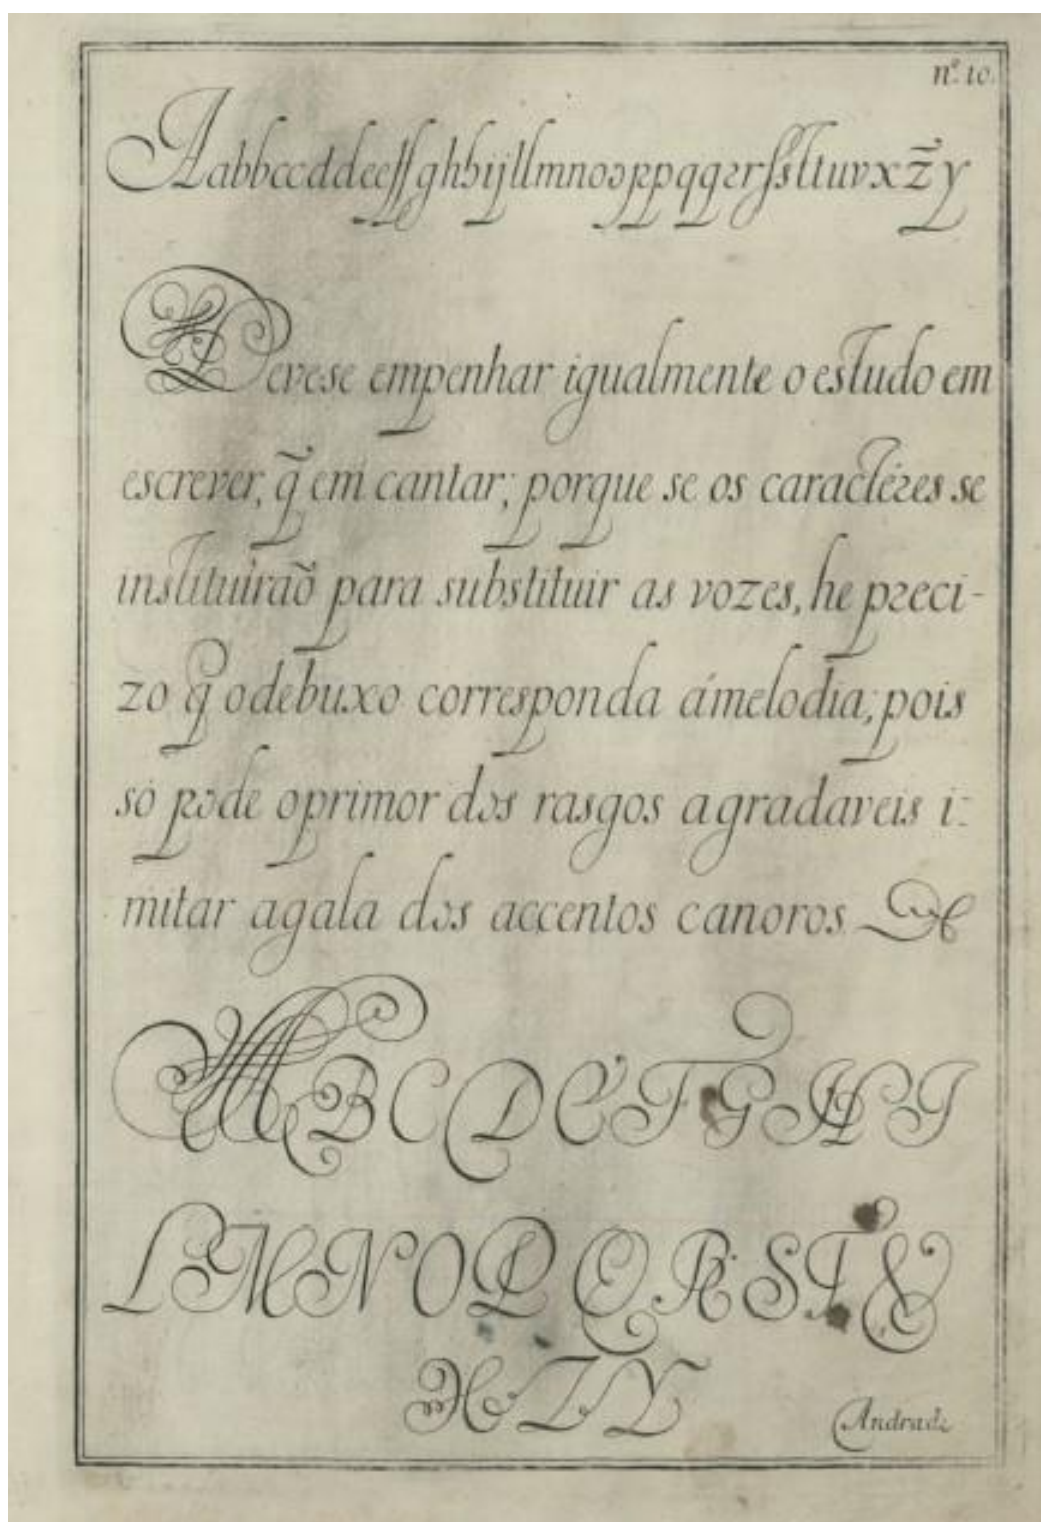 nº. 10.
Aabbccddeeffghhijjllmnoopppqqrrſſsttuvxz̃y
Devese empenhar igualmente o estudo em
escrever, q̃ em cantar; porque se os caractéres se
instituîraõ para substituir as vozes, he preci-
zo q̃ odebuxo corresponda ámelodia; pois
só pode oprimor dos rasgos agradaveis i-
mitar agala dos accentos canoros
ABCDEFGHI
LMNOPQRST&
XZY
Andrade